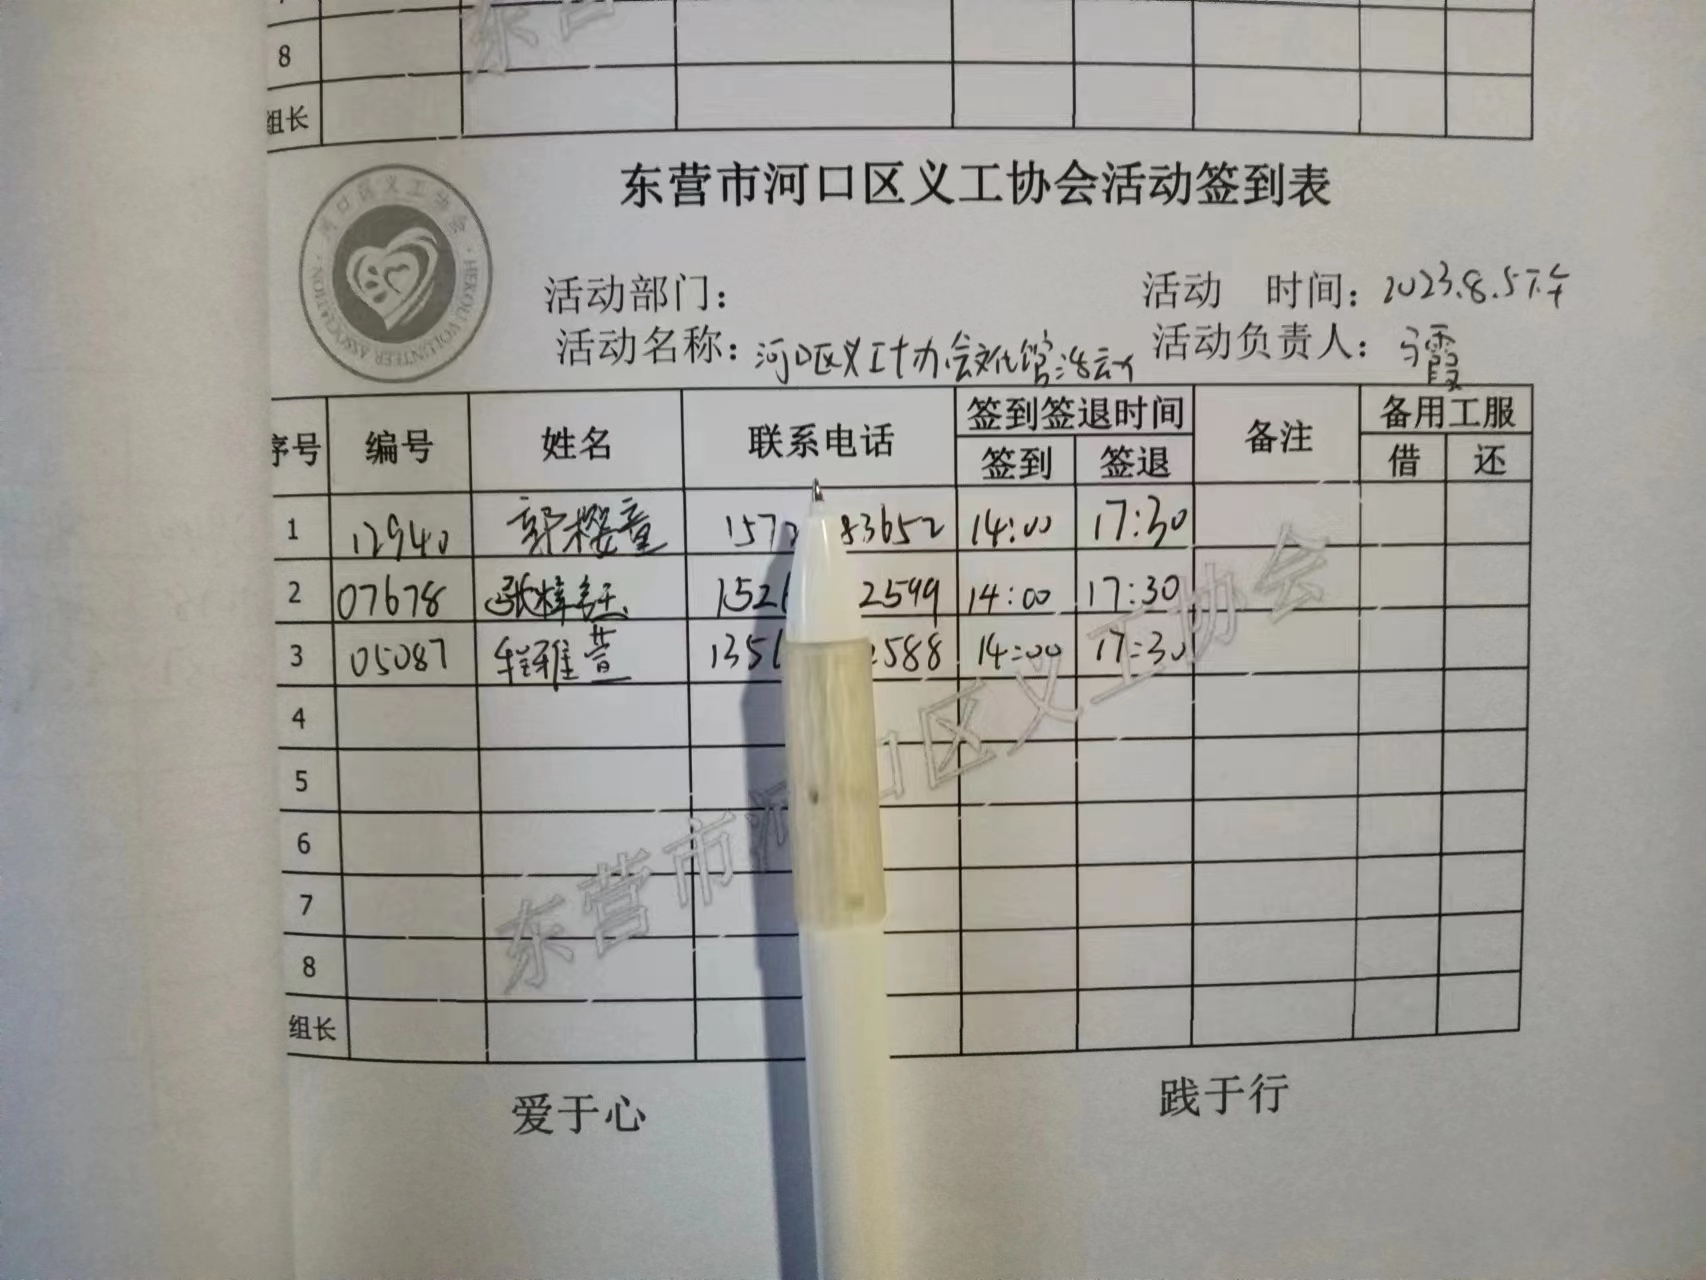 8
组长
东营市河口区义工协会活动签到表
河口区义工协会
HEKOU VOLUNTEER ASSOCIATION
活动部门：
活动 时间：2023.8.5下午
活动名称：河口区义工协会文化馆活动
活动负责人： 霞
序号 编号 姓名 联系电话 签到签退时间 备注 备用工服
签到 签退 借 还
1 12940 郭樱童 157 83652 14:00 17:30
2 07678 张梓钰 1526 2599 14:00 17:30
3 05087 程雅萱 1356 2588 14:00 17:30
4
5
6
7
8
组长
东营市河口区义工协会
爱于心 践于行